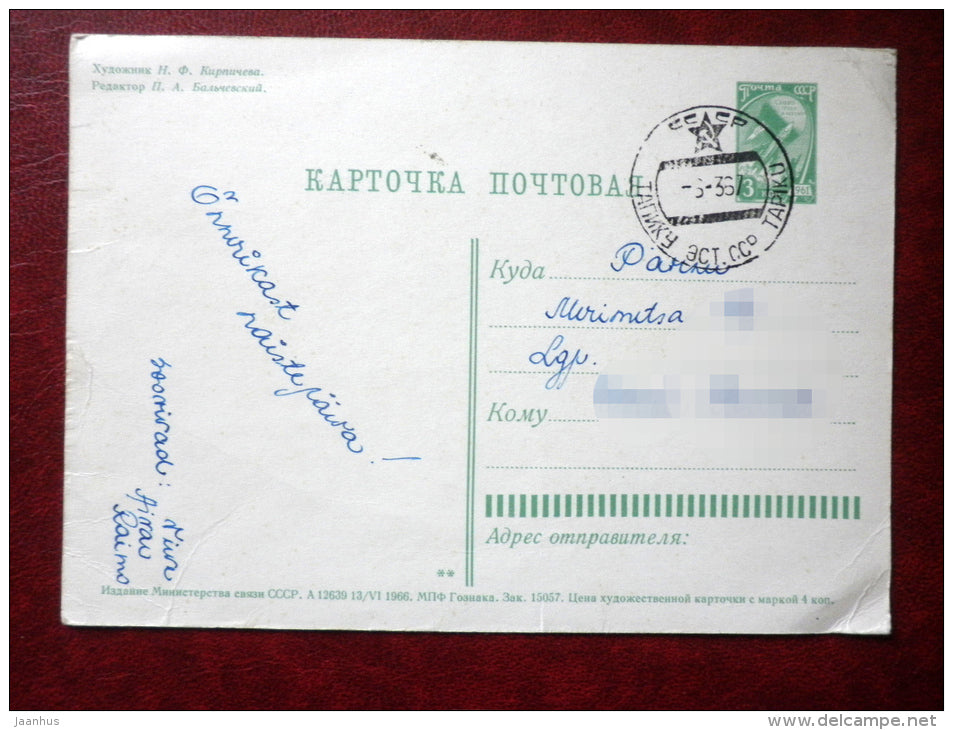 Художник Н. Ф. Кирпичева.
Редактор П. А. Бальчевский.
Почта СССР
3
1961
СССР
-6-367
ЭСТ. ССР ТАРТУ
КАРТОЧКА ПОЧТОВАЯ
Õnnerikast
naistepäeva!
soovivad: Tiiu
Aivar
Raimo
Куда Pärnu
Merimetsa
Lgp.
Кому
Адрес отправителя:
**
Издание Министерства связи СССР. А 12639 13/VI 1966. МПФ Гознака. Зак. 15057. Цена художественной карточки с маркой 4 коп.
Jaanhus
www.delcampe.net